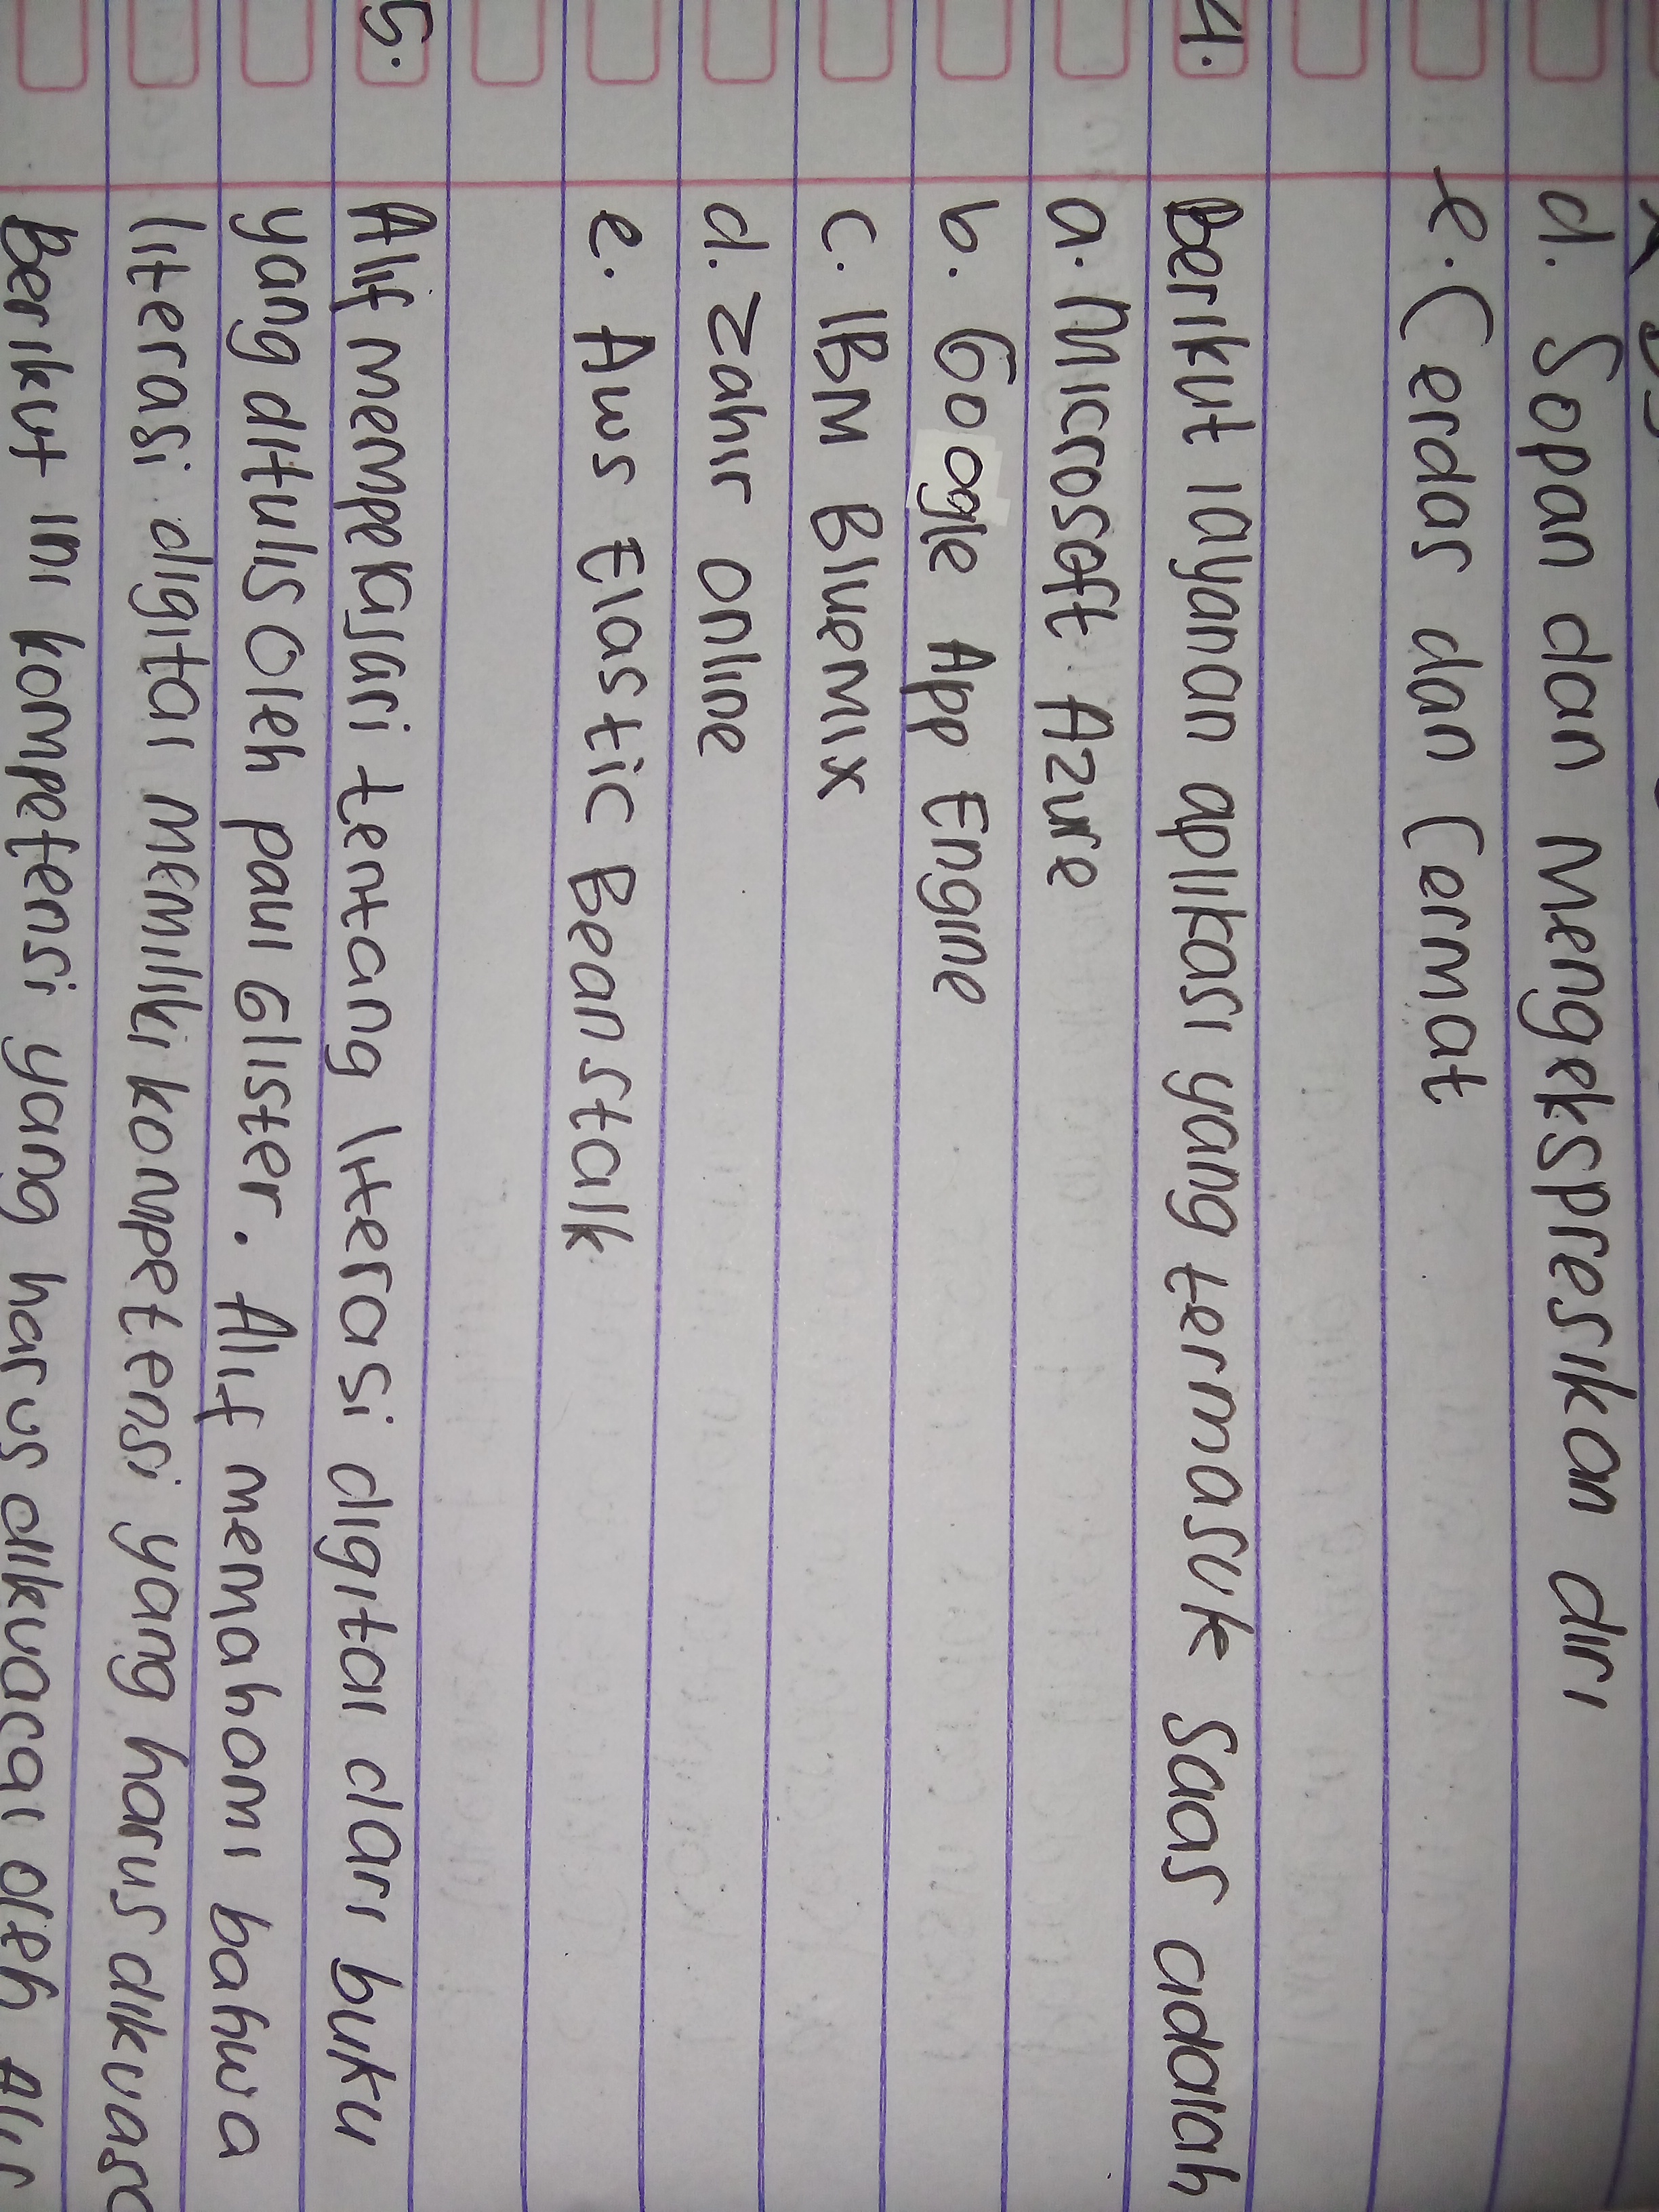 d. Sopan dan mengekspresikan diri
e. Cerdas dan Cermat
4. Berikut layanan aplikasi yang termasuk Saas adalah
a. Microseft Azure
b. Google App Engine
c. IBM Bluemix
d. Zahir online
e. Aws Elastic Beanstalk
5. Alif mempelajari tentang literasi digital dari buku
yang ditulis Oleh paul Glister. Alif memahami bahwa
literasi digital memiliki kompetensi yang harus dikuasa
Berikut ini kompetensi yang harus dikuasai oleh